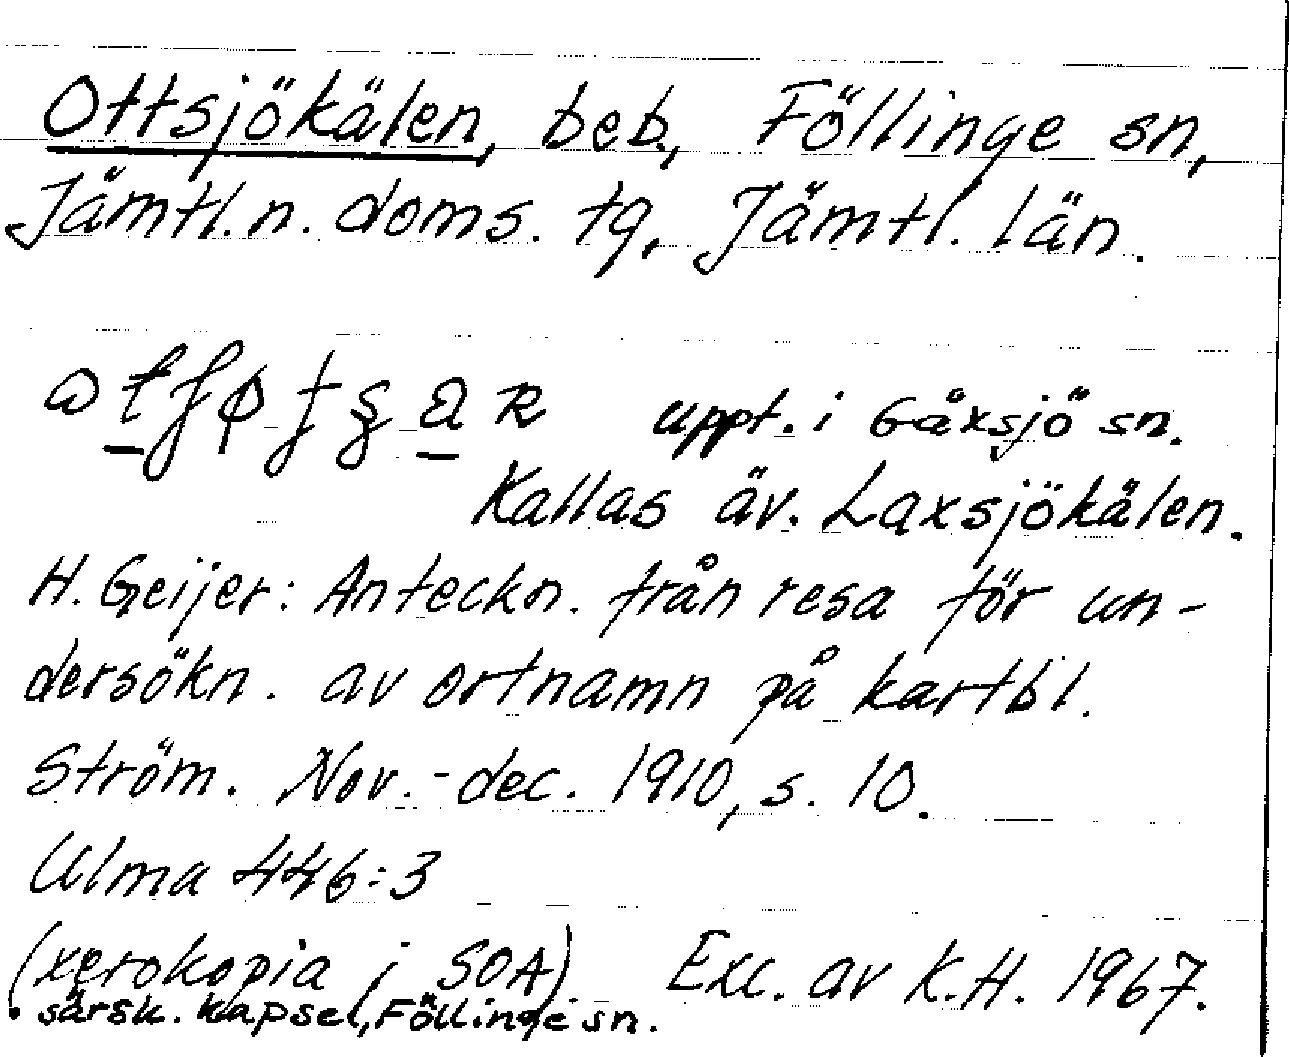 Ottsjökälen, beb., Föllinge sn,
Jämtl. n. doms. tg, Jämtl. län.
uppt. i Gåxsjö sn.
Kallas äv. Laxsjökälen.
H. Geijer: Anteckn. från resa för un-
dersökn. av ortnamn på kartbl.
Ström. Nov.-dec. 1910, s. 10.
Ulma 446:3
(xerokopia i SOA) Exc. av K.H. 1967.
särsk. kapsel, Föllinge sn.